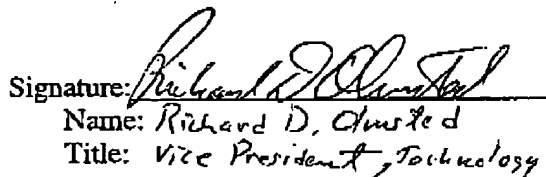 Signature: Richard D Olmsted
Name: Richard D. Olmsted
Title: Vice President, Technology